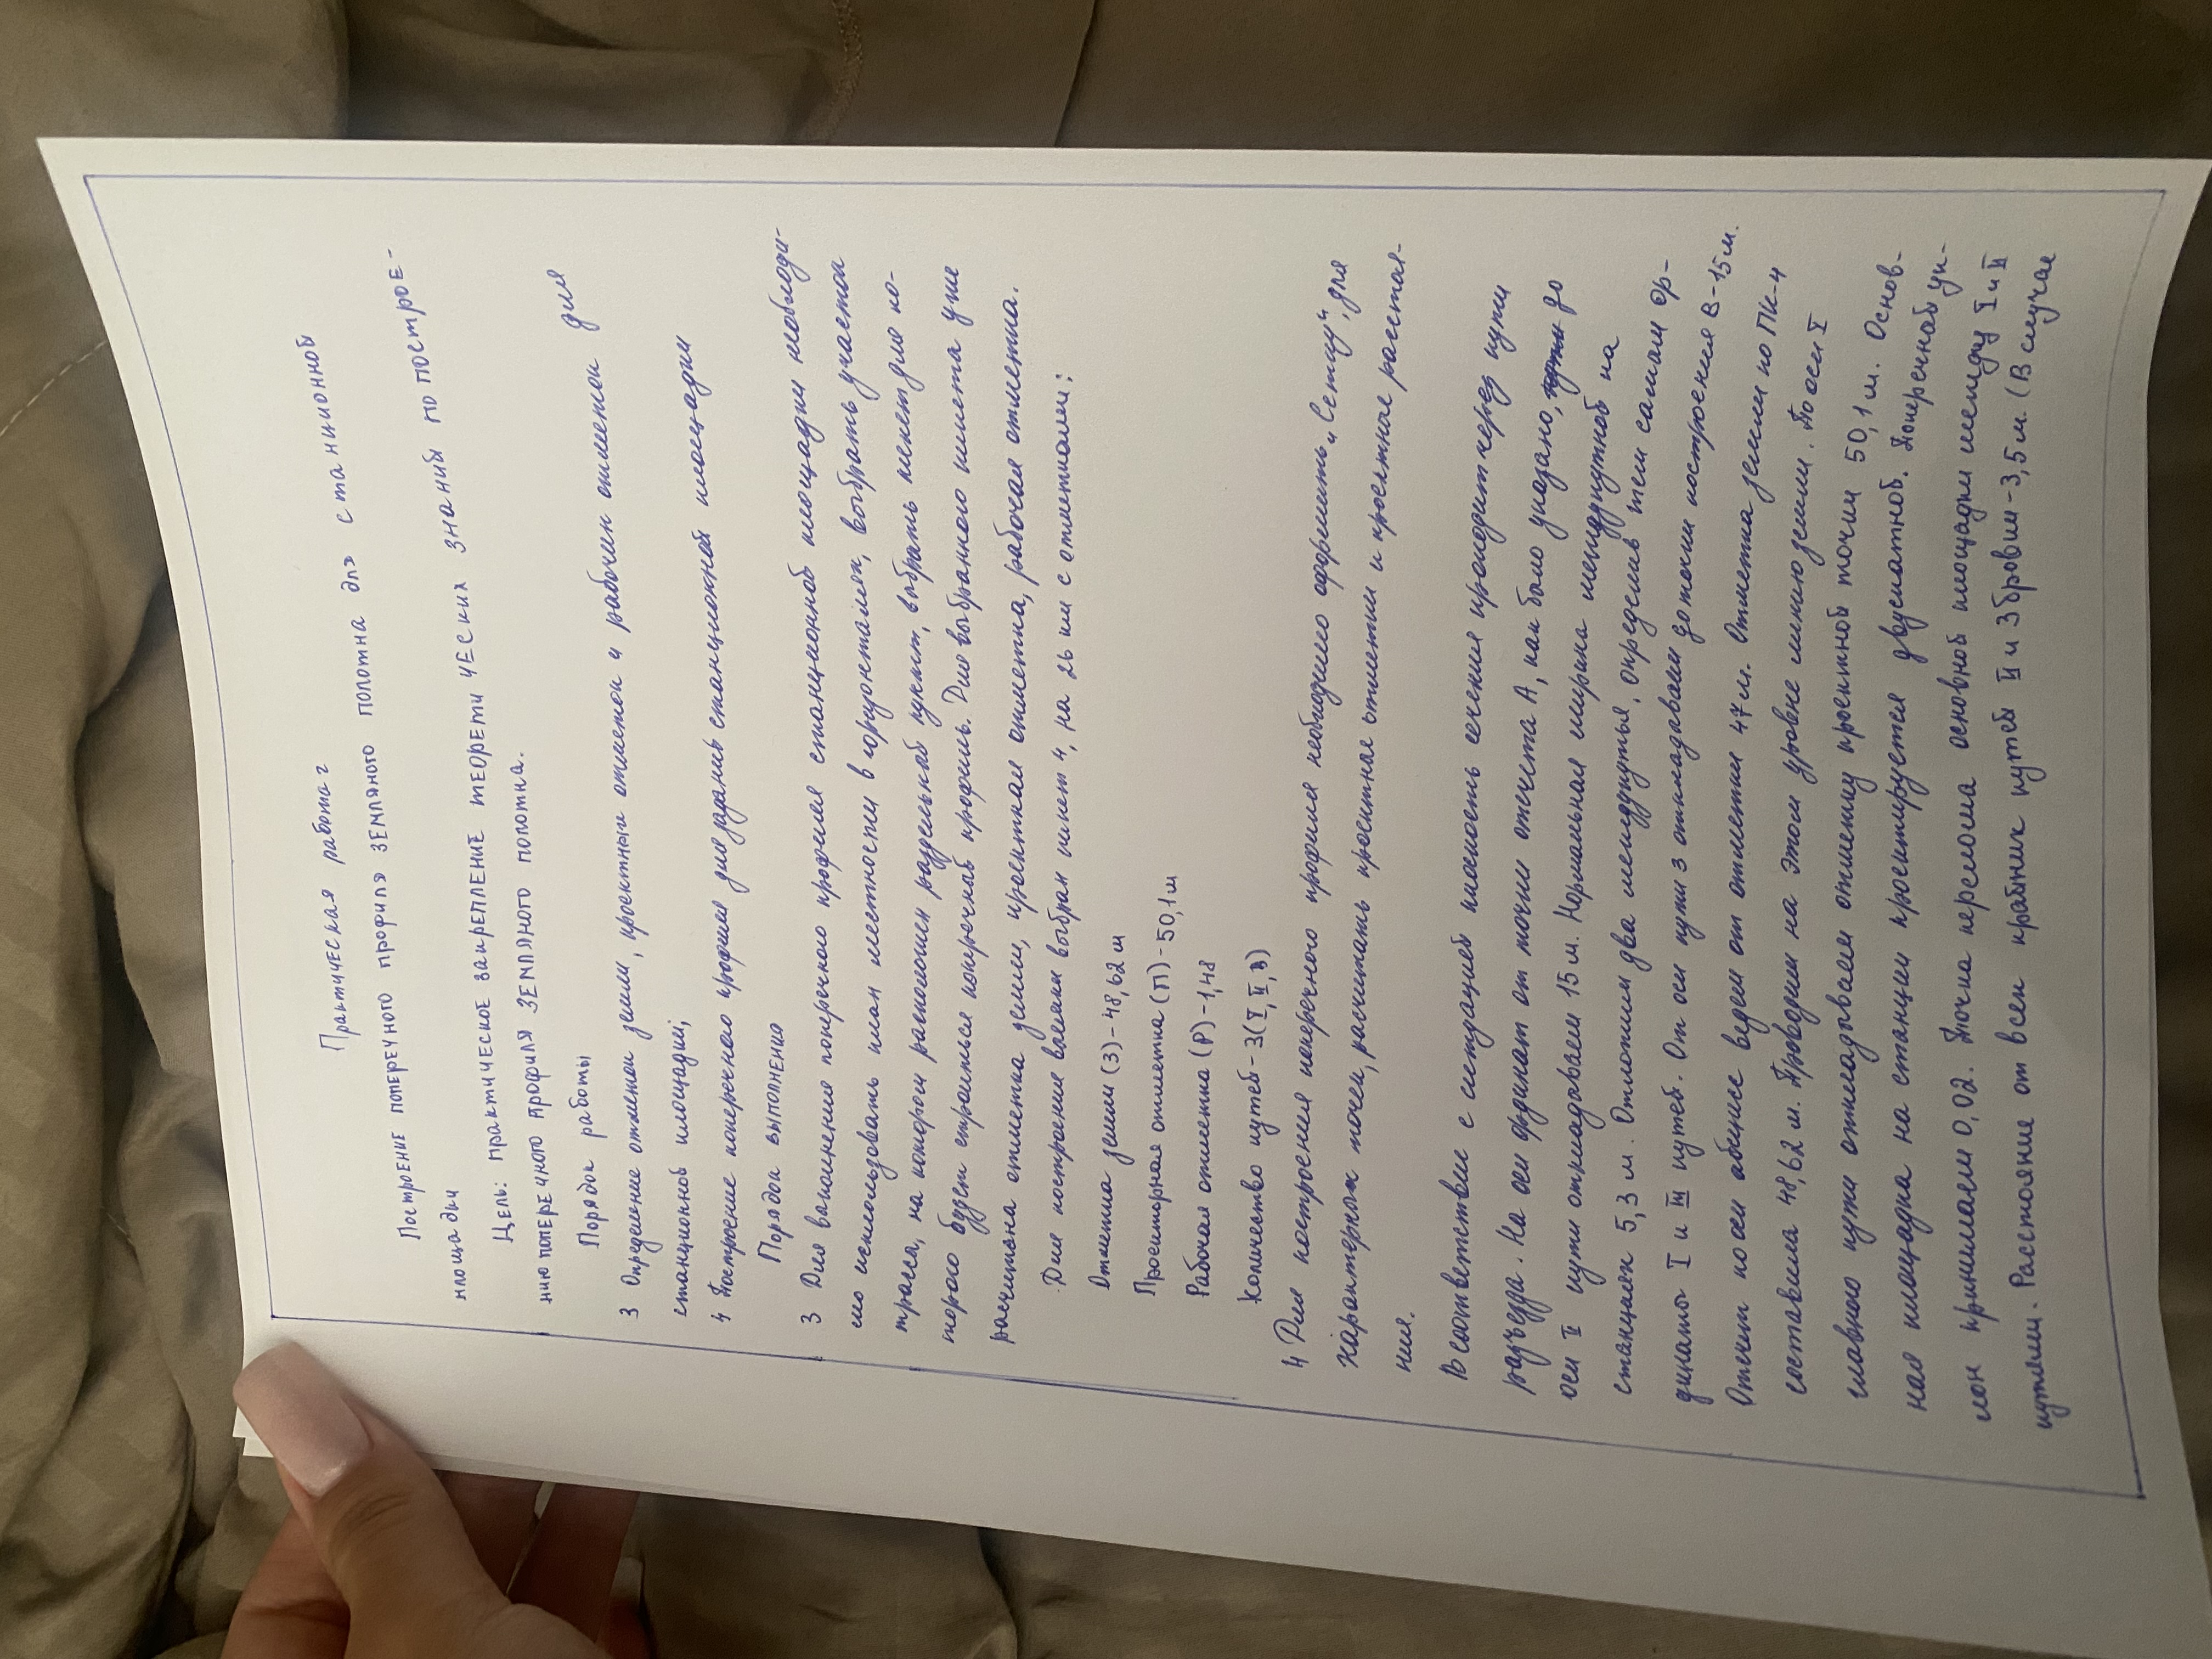 Практическая работа 2
Построение поперечного профиля земляного полотна для станционной
площадки
Цель: практическое закрепление теоретических знаний по построе-
нию поперечного профиля земляного полотна.
Порядок работы
3 Определение отметок земли, проектных отметок и рабочих отметок для
станционной площадки;
4 Построение поперечного профиля для станционной площадки
Порядок выполнения
3 Для выполнения поперечного профиля станционной площадки необходи-
мо использовать план местности в горизонталях, выбрать участок
трассы, на котором расположен раздельный пункт, выбрать пикет для ко-
торого будет строиться поперечный профиль. Для выбранного пикета уже
расчитана отметка земли, проектная отметка, рабочая отметка.
Для построения взят выбран пикет 4, на 26 км с отметками:
Отметка земли (З) - 48,62 м
Проектная отметка (П) - 50,1 м
Рабочая отметка (Р) - 1,48
Количество путей - 3 (I, II, 3)
4 Для построения поперечного профиля необходимо оформить „сетку", для
характерных точек, расчитать проектные отметки и проектные расстоя-
ния.
В соответствие с ситуацией плоскость сечения проходит через пути
разъезда. На оси ординат от точки отсчета А, как было указано, до
оси II пути откладываем 15 м. Нормальная ширина междупутной на
станциях 5,3 м. Отложим два междупутья, определив тем самым ор-
динаты I и III путей. От оси пути 3 откладываем до точки построения В - 15 м.
Отсчет по оси абсцисс ведем от отметки 47 м. Отметка земли по ПК-4
составила 48,62 м. Проводим на этом уровне линию земли. По оси II
главного пути откладываем отметку проектной точки 50,1 м. Основ-
ная площадка на станции проектируется двускатной. Поперечный ук-
лон принимаем 0,02. Точка перелома основной площадки между I и II
путями. Расстояние от всех крайних путей II и 3 бровки - 3,5 м. (В случае